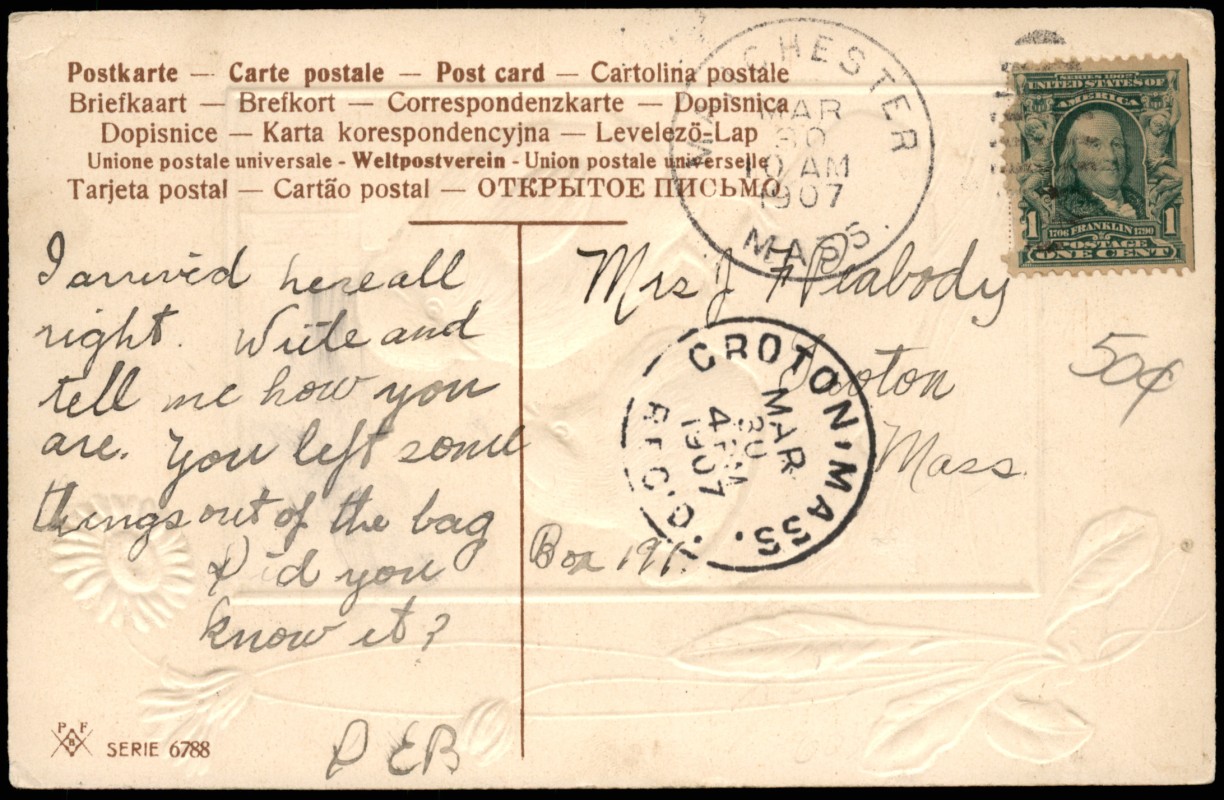 Postkarte — Carte postale — Post card — Cartolina postale
Briefkaart — Brefkort — Correspondenzkarte — Dopisnica
Dopisnice — Karta korespondencyjna — Levelezö-Lap
Unione postale universale - Weltpostverein - Union postale universelle
Tarjeta postal — Cartão postal — ОТКРЫТОЕ ПИСЬМО
CHESTER
MAR
30
10 AM
1907
MASS.
SERIES 1902
UNITED STATES OF
AMERICA
1 1
1706 FRANKLIN 1790
POSTAGE
ONE CENT
I arrived here all
right. Write and
tell me how you
are. You left some
things out of the bag
Did you
know it?
P E B
Mrs J F Peabody
Groton
Mass.
Box 191.
50¢
GROTON, MASS.
MAR
30
4 PM
1907
REC'D.
P F
B
SERIE 6788